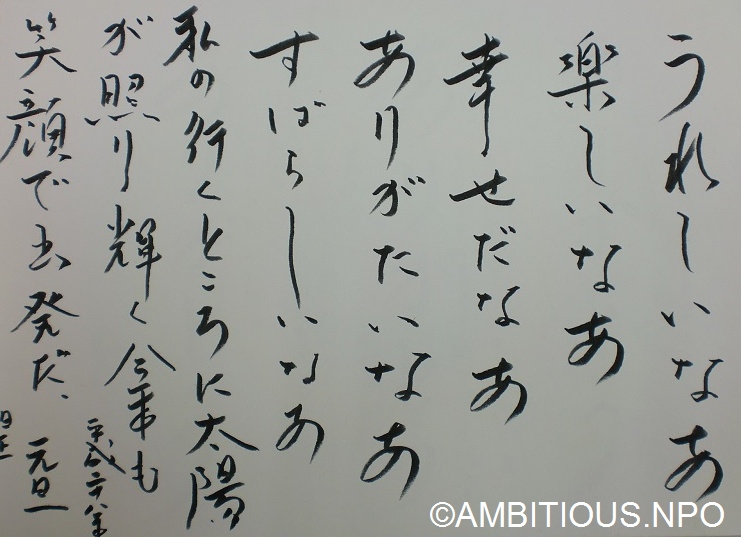 うれしいなあ
楽しいなあ
幸せだなあ
ありがたいなあ
すばらしいなあ
私の行くところに太陽
が照り輝く今年も
笑顔で出発だ、
平成二十八年
元旦
©AMBITIOUS.NPO